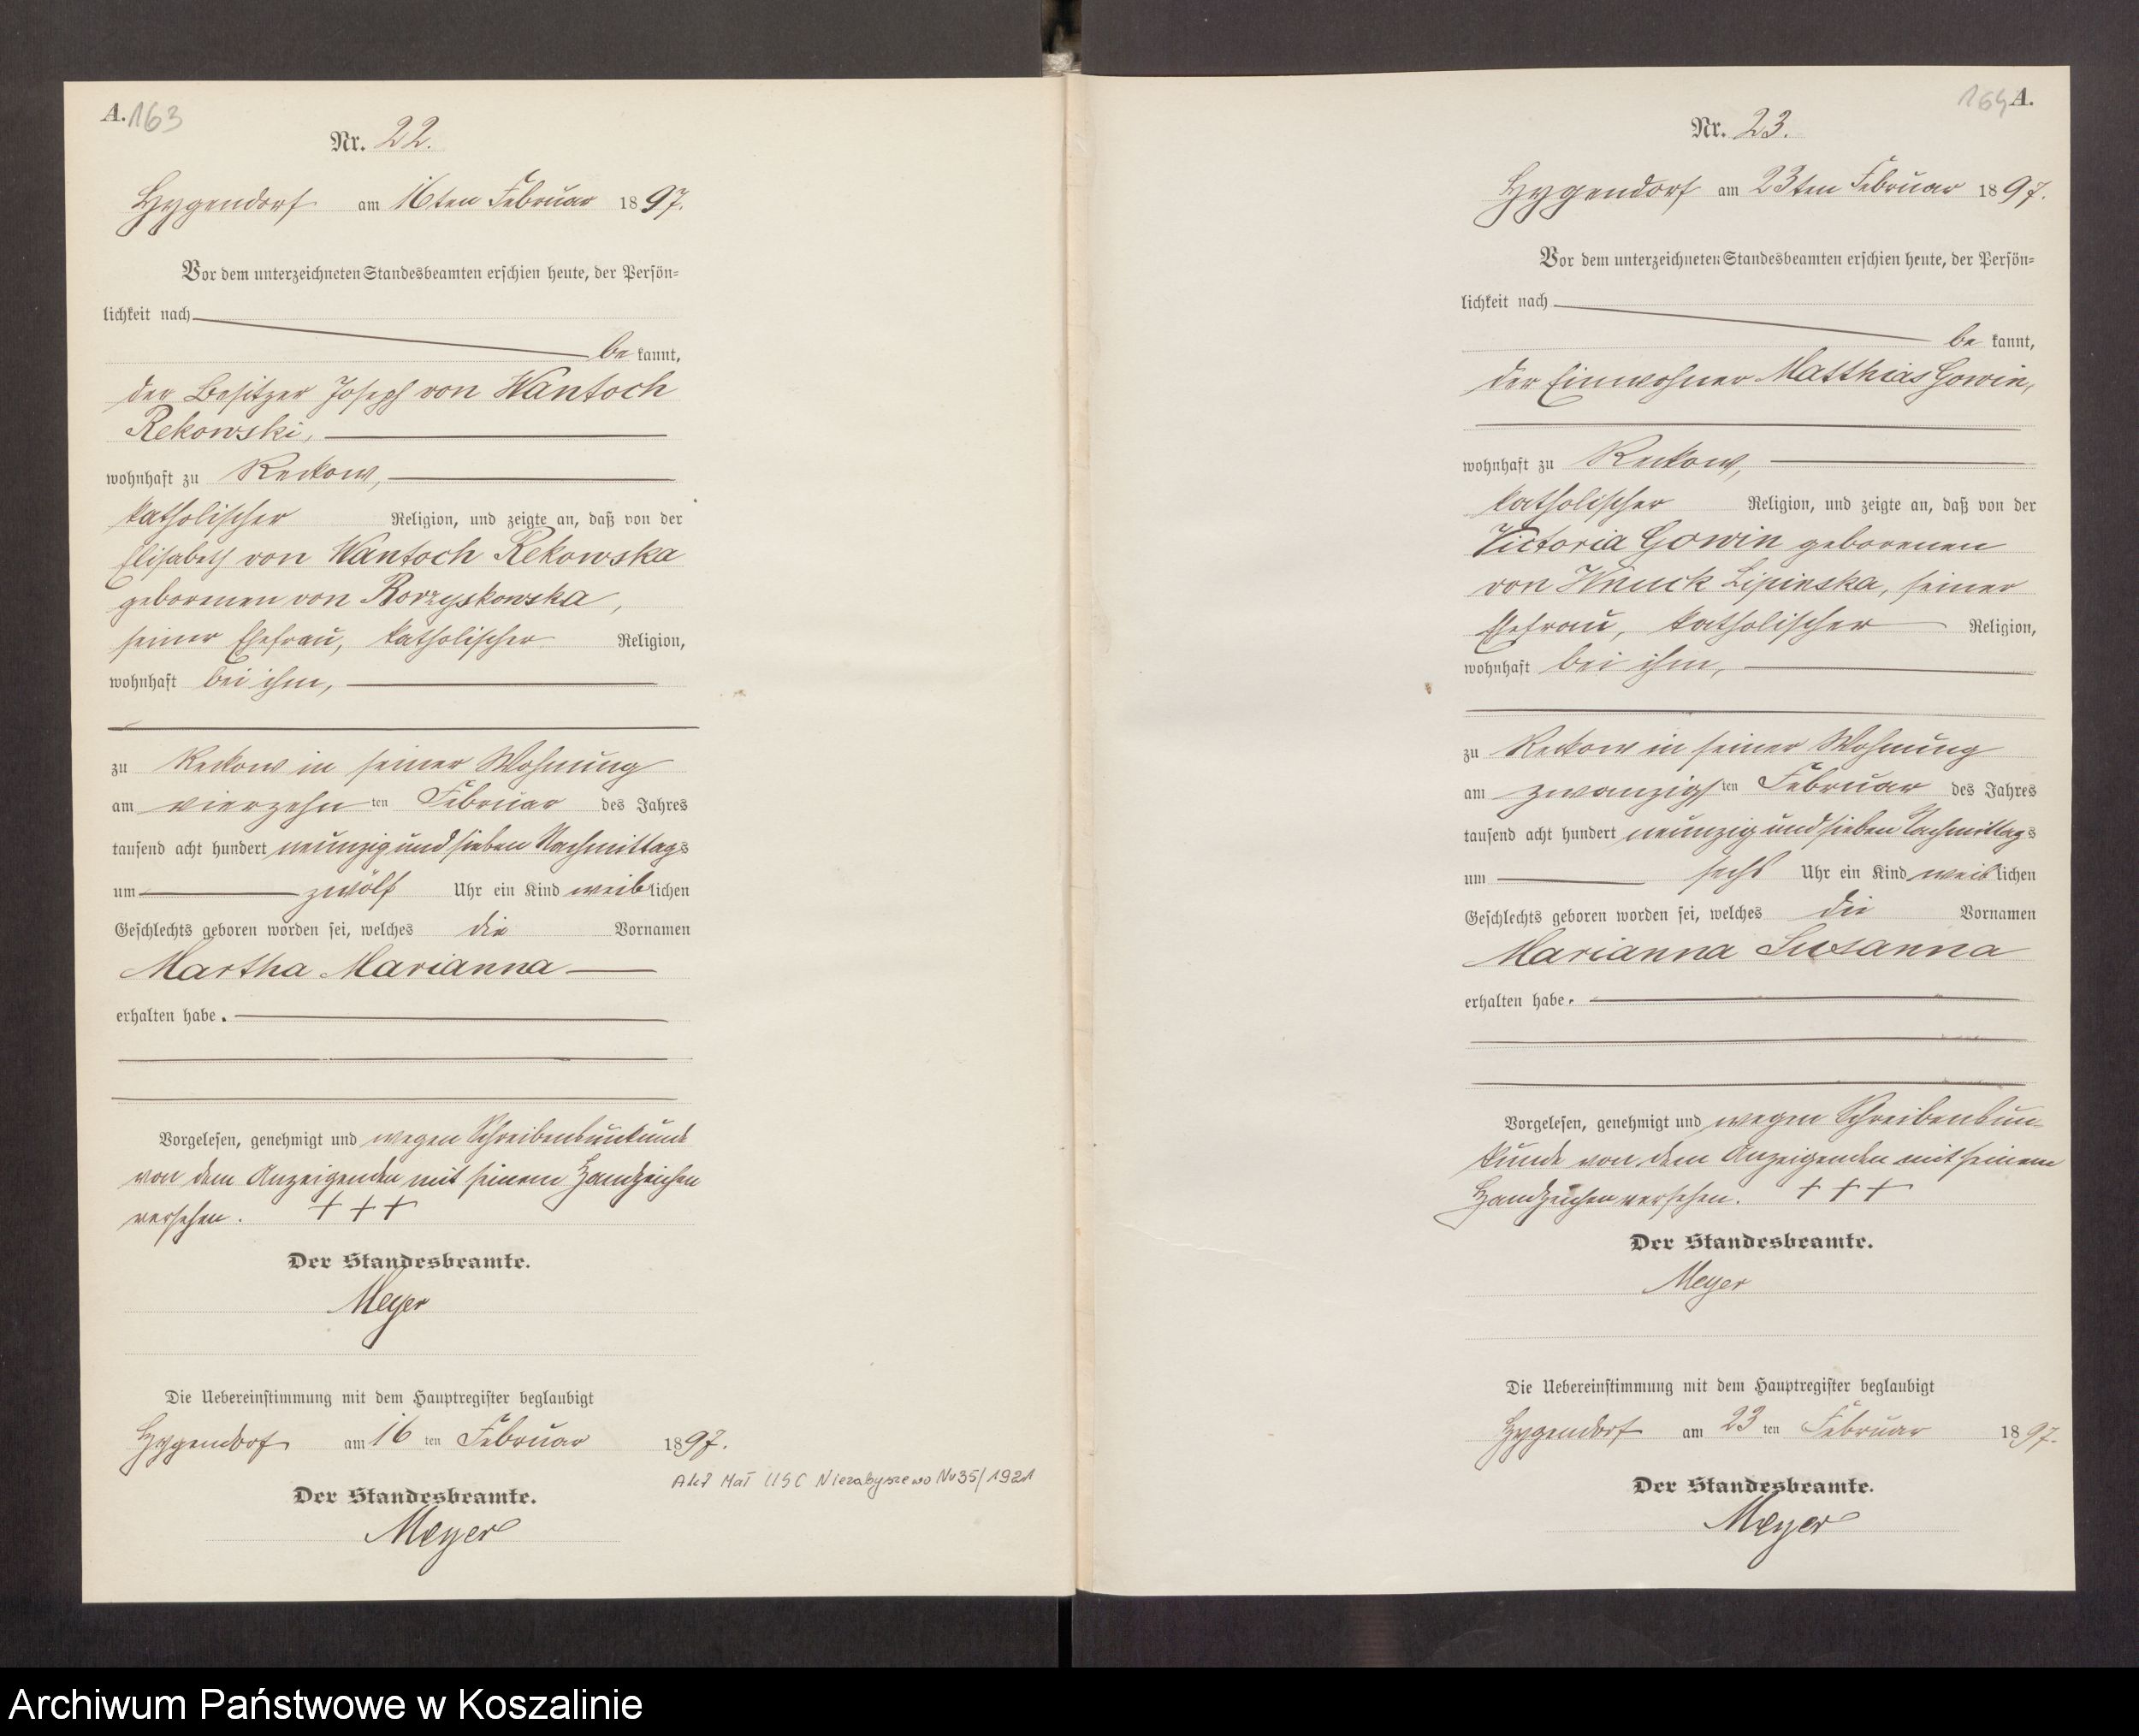 A. 163
Nr. 22.
Hygendorf am 16ten Februar 1897.
Vor dem unterzeichneten Standesbeamten erschien heute, der Persön-
lichkeit nach
be kannt,
der Besitzer Joseph von Wantoch
Rekowski,
wohnhaft zu Reckow,
katholischer Religion, und zeigte an, daß von der
Elisabeth von Wantoch Rekowska
geborenen von Borzyskowska,
seiner Ehefrau, katholischer Religion,
wohnhaft bei ihm,
zu Reckow in seiner Wohnung
am vierzehn ten Februar des Jahres
tausend acht hundert neunzig und sieben Nachmittags
um zwölf Uhr ein Kind weiblichen
Geschlechts geboren worden sei, welches die Vornamen
Martha Marianna
erhalten habe.
Vorgelesen, genehmigt und wegen Schreibensunkunde
von dem Anzeigenden mit seinem Handzeichen
versehen. + + +
Der Standesbeamte.
Meyer
Die Uebereinstimmung mit dem Hauptregister beglaubigt
Hygendorf am 16 ten Februar 1897.
Akt Mał USC Niezabyszewo Nr 35/1921
Der Standesbeamte.
Meyer
164 A.
Nr. 23.
Hygendorf am 23ten Februar 1897.
Vor dem unterzeichneten Standesbeamten erschien heute, der Persön-
lichkeit nach
be kannt,
der Einwohner Matthias Gowin,
wohnhaft zu Reckow,
katholischer Religion, und zeigte an, daß von der
Victoria Gowin geborenen
von Wnuck Lipinska, seiner
Ehefrau, katholischer Religion,
wohnhaft bei ihm,
zu Reckow in seiner Wohnung
am zwanzigsten Februar des Jahres
tausend acht hundert neunzig und sieben Nachmittags
um sechs Uhr ein Kind weiblichen
Geschlechts geboren worden sei, welches die Vornamen
Marianna Susanna
erhalten habe.
Vorgelesen, genehmigt und wegen Schreibensun-
kunde von dem Anzeigenden mit seinem
Handzeichen versehen. + + +
Der Standesbeamte.
Meyer
Die Uebereinstimmung mit dem Hauptregister beglaubigt
Hygendorf am 23 ten Februar 1897.
Der Standesbeamte.
Meyer
Archiwum Państwowe w Koszalinie